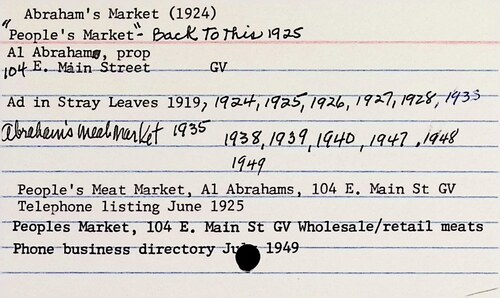 Abraham's Market (1924)
"People's Market"- Back To This 1925
Al Abrahams, prop
104 E. Main Street GV
Ad in Stray Leaves 1919, 1924, 1925, 1926, 1927, 1928, 1933
Abraham's Meat Market 1935 1938, 1939, 1940, 1947, 1948
1949
People's Meat Market, Al Abrahams, 104 E. Main St GV
Telephone listing June 1925
Peoples Market, 104 E. Main St GV Wholesale/retail meats
Phone business directory July 1949